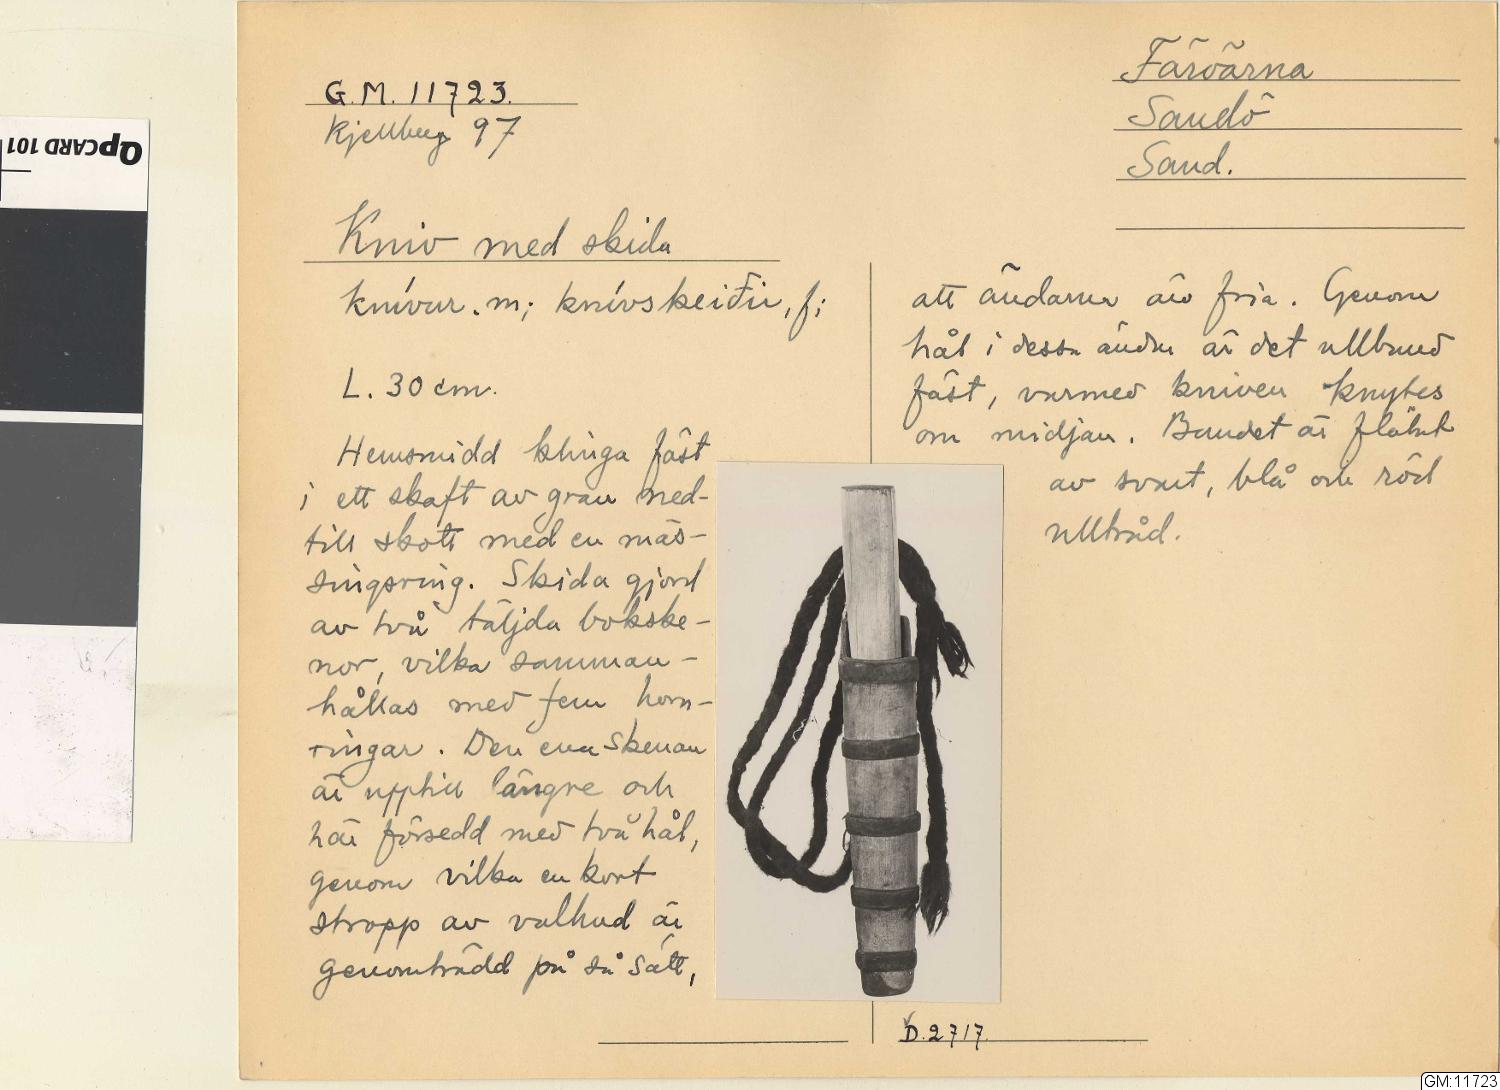 QPCARD 101
G.M. 11723.
Kjellberg 97
Färöarna
Sandö
Sand.
Kniv med skida
knívur. m; knívskeiðir, f;
L. 30 cm.
Hemsmidd klinga fäst
i ett skaft av gran ned-
till skott med en mäs-
singsring. Skida gjord
av två täljda bokske-
nor, vilka samman-
hållas med fem horn-
ringar. Den ena skenan
är upptill längre och
här försedd med två hål,
genom vilka en kort
stropp av valhud är
genomträdd på så sätt,
att ändarna äro fria. Genom
hål i dessa ändar är det ullband
fäst, varmed kniven knytes
om midjan. Bandet är flätat
av svart, blå och röd
ulltråd.
D.2717.
GM:11723